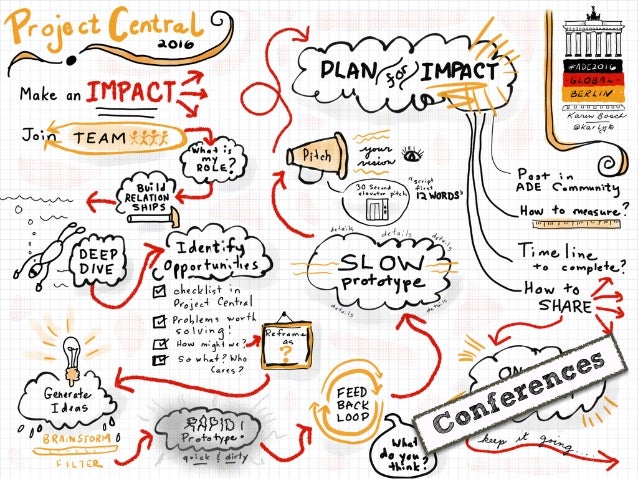 Project Central
2016
Make an IMPACT
Join TEAM
What is
my
ROLE?
Build
RELATION
SHIPS
DEEP
DIVE
Identify
Opportunities
checklist in
Project Central
Problems worth
solving!
How might we?
So what? Who
Cares?
Reframe
as
?
Generate
Ideas
BRAINSTORM
FILTER
RAPID
Prototype!
quick & dirty
FEED
BACK
LOOP
What
do you
think?
SLOW
prototype
details
details
details
details
details
Pitch
your
vision
30 Second
elevator pitch
"script
first
12 WORDS"
PLAN for IMPACT
Post in
ADE Community
How to measure?
Timeline
to complete?
How to
SHARE
Conferences
keep it going...
#ADE2016
GLOBAL
BERLIN
@karlyb